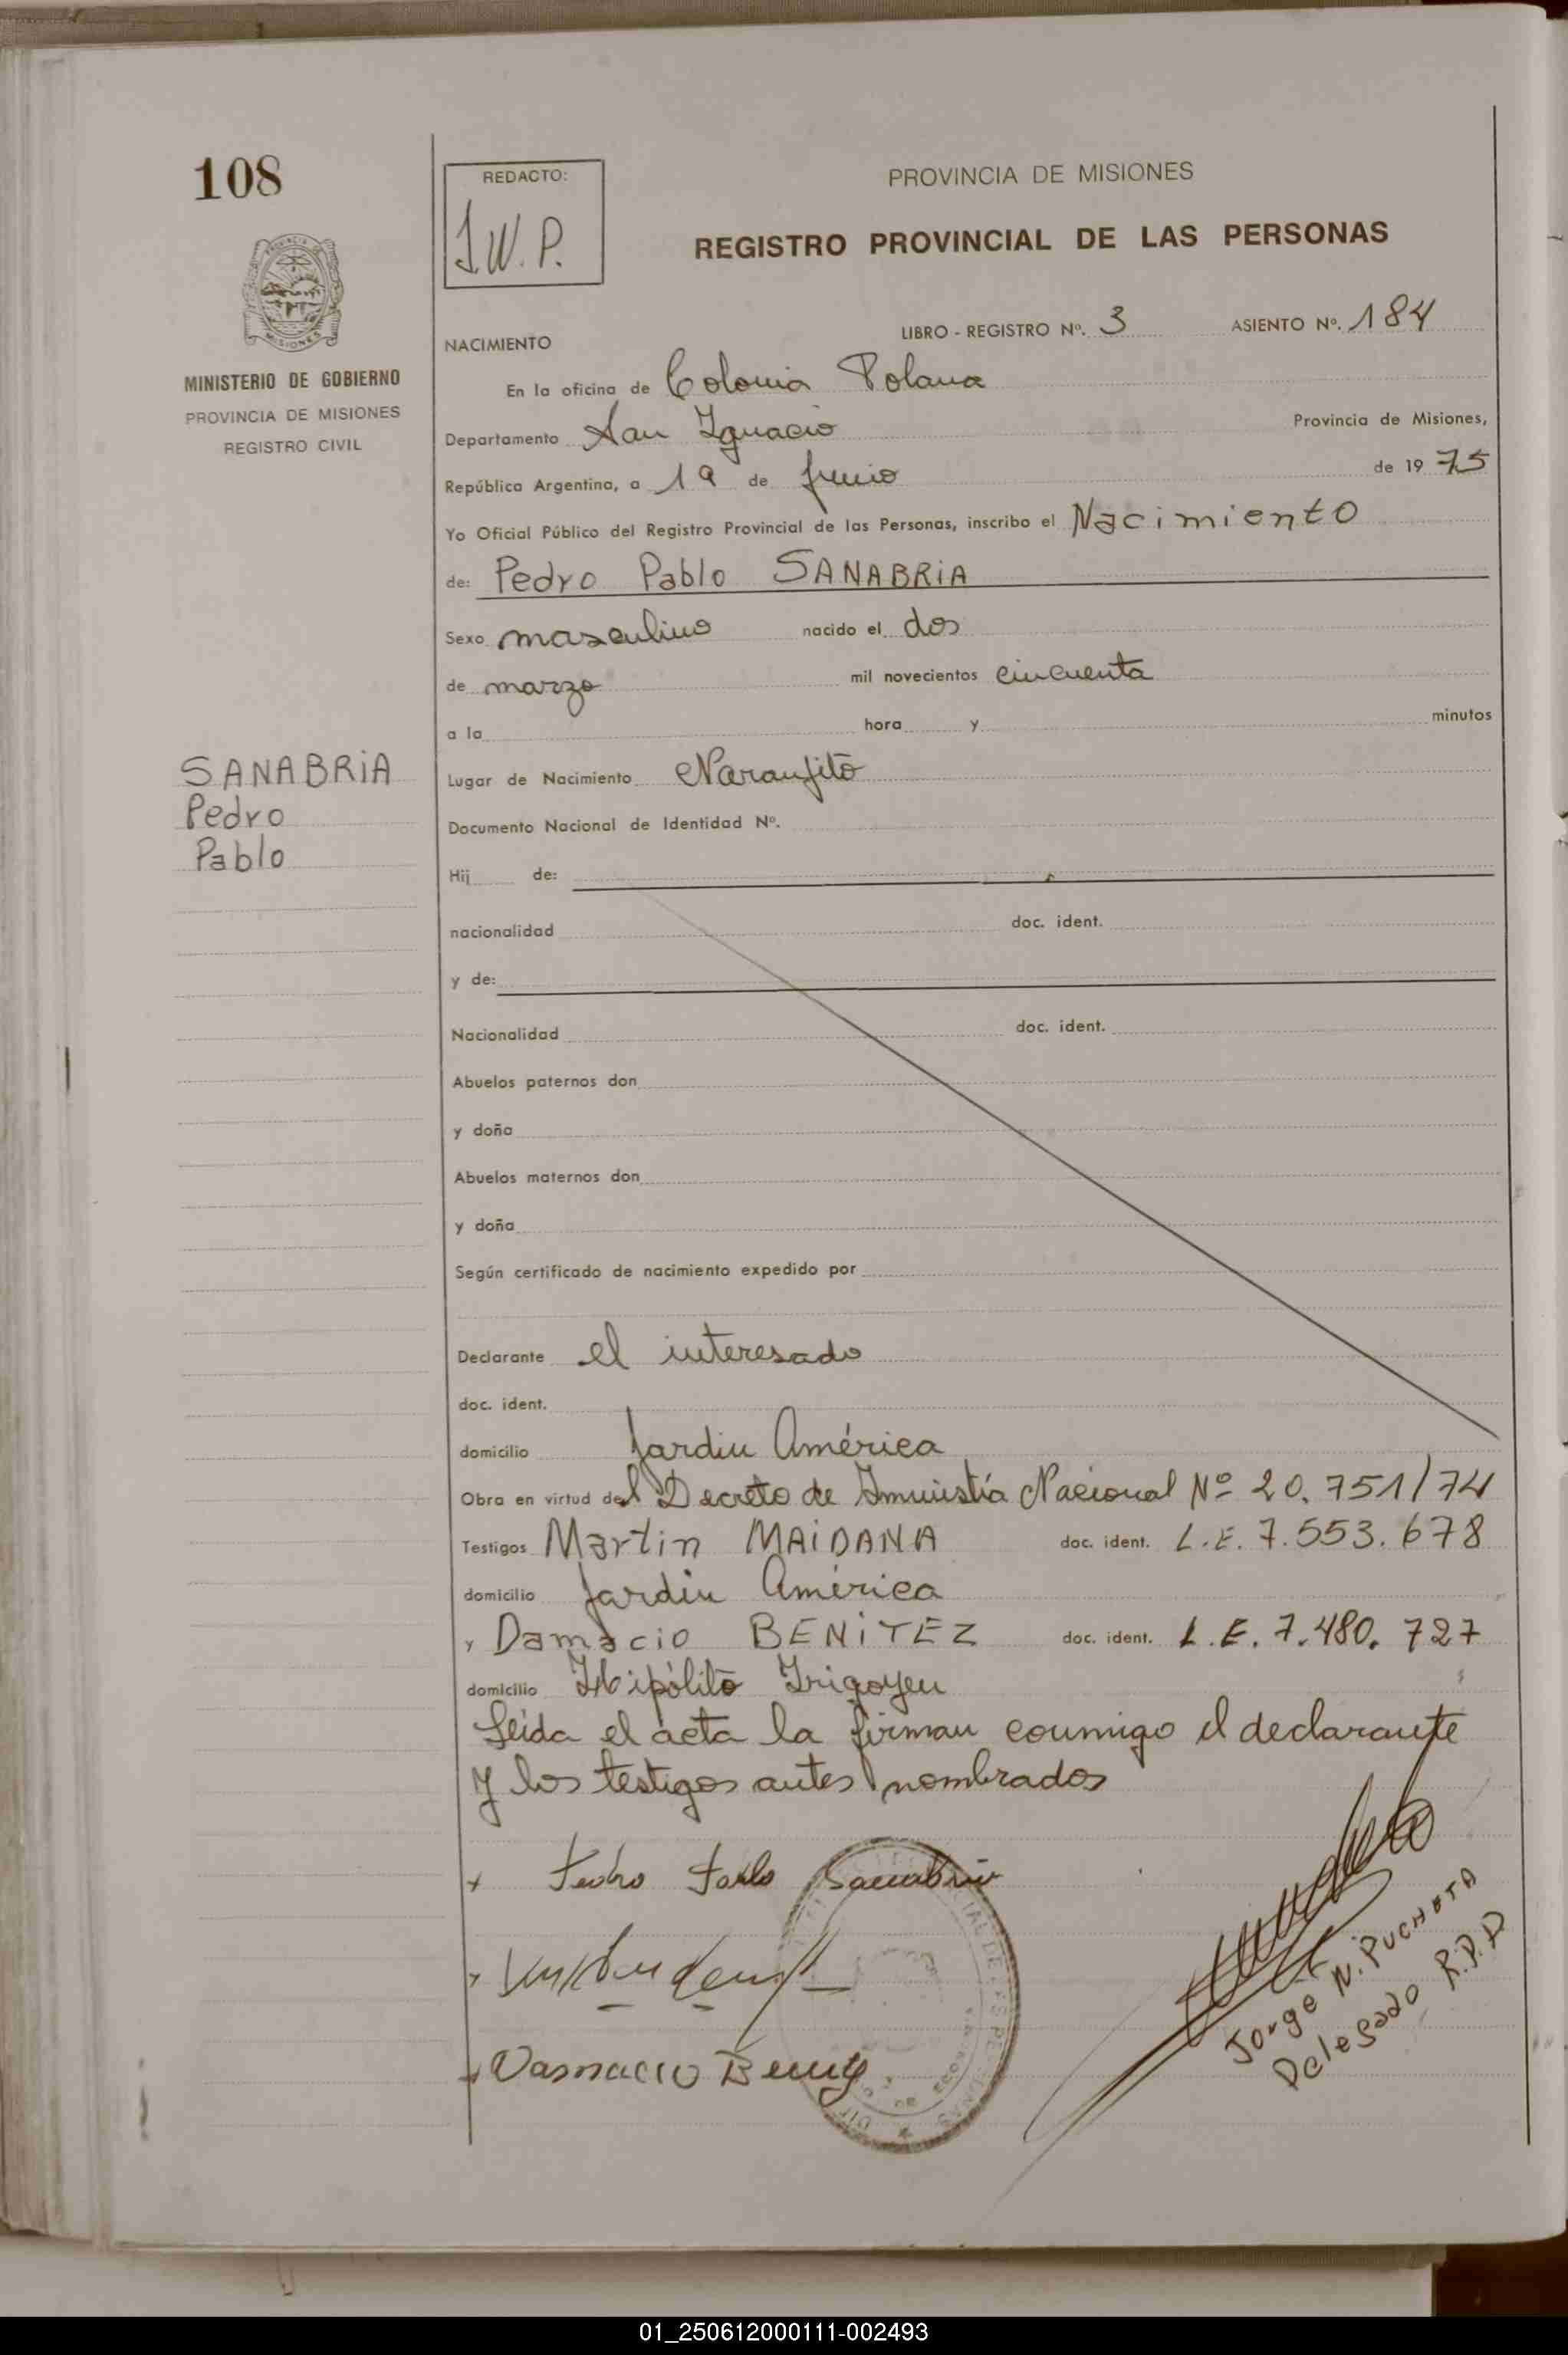 108
REDACTO:
J.W.P.
PROVINCIA DE MISIONES
REGISTRO PROVINCIAL DE LAS PERSONAS
MINISTERIO DE GOBIERNO
PROVINCIA DE MISIONES
REGISTRO CIVIL
LIBRO - REGISTRO Nº. 3 ASIENTO Nº. 184
NACIMIENTO
En la oficina de Colonia Polana
Departamento San Ignacio Provincia de Misiones,
República Argentina, a 19 de Junio de 19 75
Yo Oficial Público del Registro Provincial de las Personas, inscribo el Nacimiento
de: Pedro Pablo SANABRIA
Sexo masculino nacido el dos
de marzo mil novecientos cincuenta
a la hora y minutos
SANABRIA
Pedro
Pablo
Lugar de Nacimiento Naranjito
Documento Nacional de Identidad Nº.
Hij de:
nacionalidad doc. ident.
y de:
Nacionalidad doc. ident.
Abuelos paternos don
y doña
Abuelos maternos don
y doña
Según certificado de nacimiento expedido por
Declarante el interesado
doc. ident.
domicilio Jardin América
Obra en virtud del Decreto de Amnistía Nacional Nº 20.751/74
Testigos Martin MAIDANA doc. ident. L.E. 7.553.678
domicilio Jardin América
y Damacio BENITEZ doc. ident. L.E. 7.480.727
domicilio Hipólito Irigoyen
Leida el acta la firman conmigo el declarante
y los testigos antes nombrados
Pedro Pablo Sanabria
Damacio Benitez
Jorge N. PUCHETA
Delegado R.P.P
01_250612000111-002493